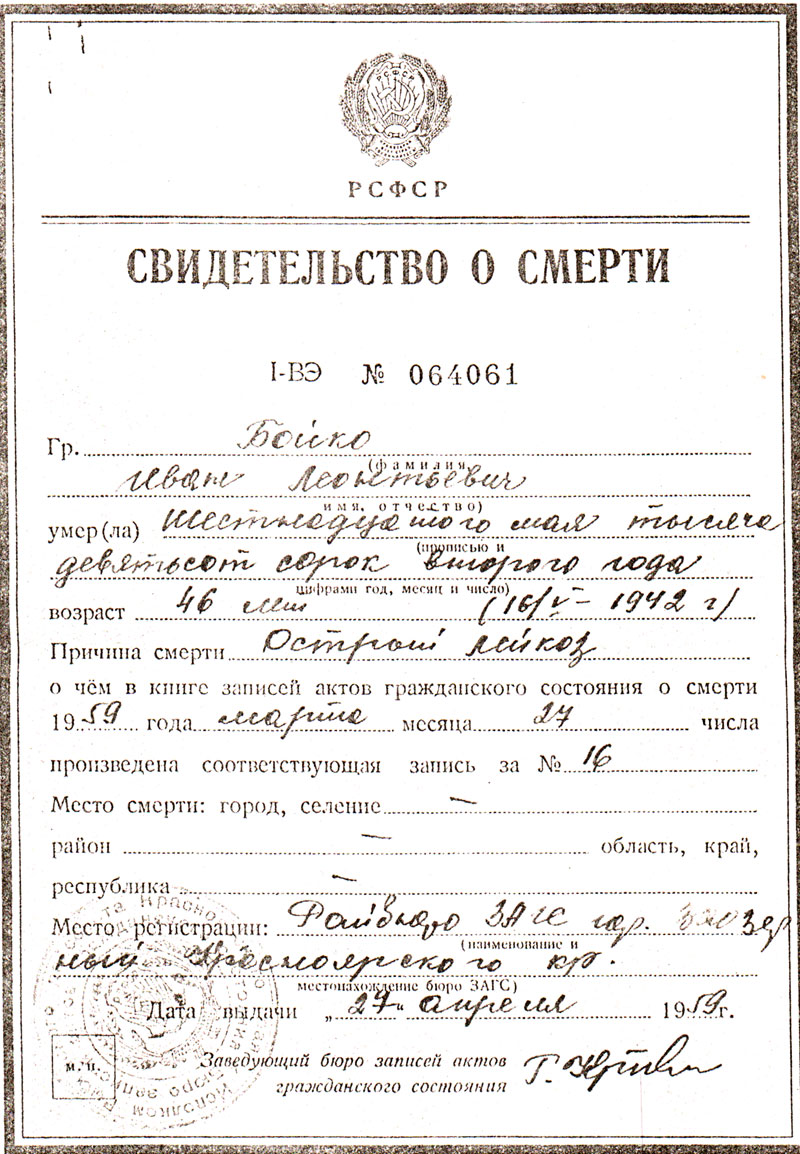 РСФСР
СВИДЕТЕЛЬСТВО О СМЕРТИ
I-ВЭ № 064061
Гр. Бойко
(фамилия,
Иван Леонтьевич
имя, отчество)
умер(ла) Шестнадцатого мая тысяча
(прописью и
девятьсот сорок второго года
цифрами год, месяц и число)
возраст 46 лет (16/V – 1942 г)
Причина смерти Острый лейкоз
о чём в книге записей актов гражданского состояния о смерти
1959 года марта месяца 27 числа
произведена соответствующая запись за № 16
Место смерти: город, селение —
район — область, край,
республика —
Место регистрации: Райбюро ЗАГС гор. Заозер
(наименование и
ный Красноярского кр.
местонахождение бюро ЗАГС)
Дата выдачи „27“ апреля 1959г.
м.п.
Заведующий бюро записей актов
гражданского состояния